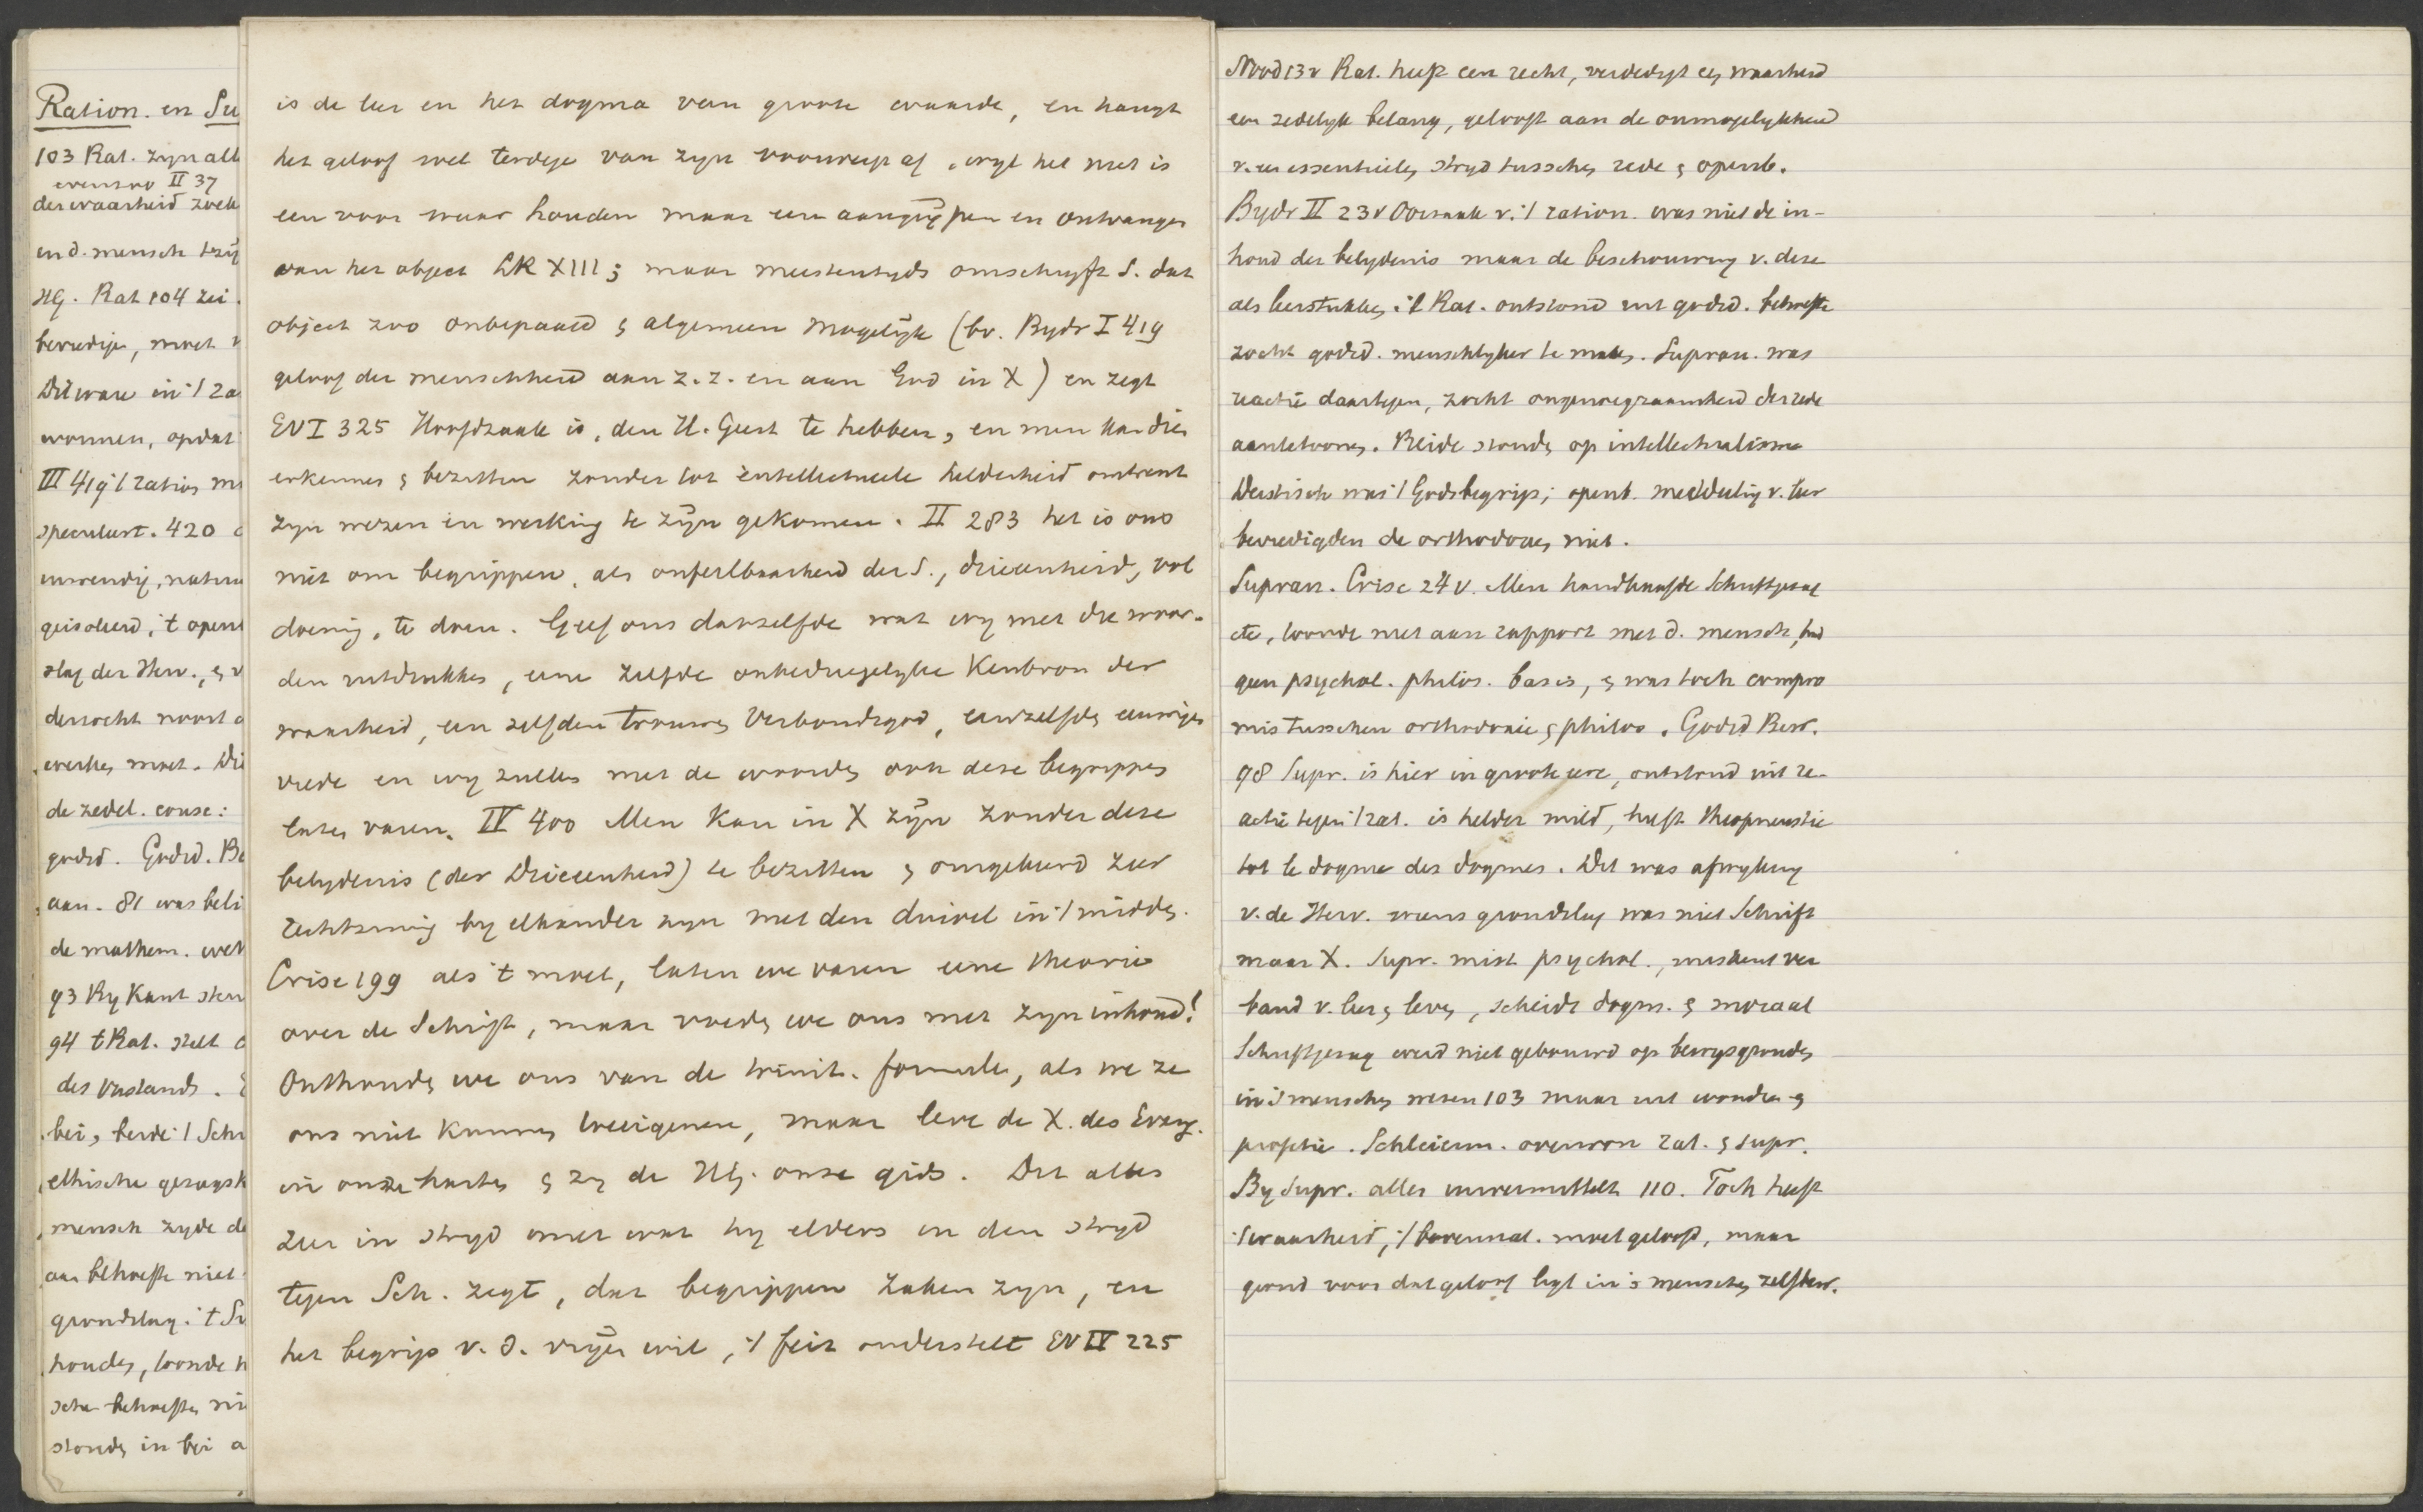 Ration. en Su
103 Rat. zyn all
evenzoo II 37
der waarheid zoek
en d. mensch
HG. Rat 104 zei
bevredige, moet
Dit ware in 't za
wonnen, opdat
III 419 't ration
speculat. 420
inwendig, natuu
geisoleerd, 't open
slag der Herv., &
derzocht noort
werke moet. Di
de zedel. consc:
godsd. Godsd. Be
aan. 81 was beli
de mathem. wet
93 By Kant
94 't Rat. stelt
des verstands.
bei, beide 't Schr
ethische gezags
mensch zyde de
aan behoefte niet
grondslag. 't Su
houde, toonde
sche behoefte ni
stonde in bei a
is de leer en het dogma van groote waarde, en hangt
het geloof wel terdege van zyn voorwerp af, wyl het niet is
een voor waar houden maar een aangrijpen en ontvangen
van het object LR XIII; maar meestentyds omschryft S. dat
object zoo onbepaald & algemeen mogelijk (bv. Bydr I 419
geloof der menschheid aan z.z. en aan God in X) en zegt
EV I 325 Hoofdzaak is, den H. Geest te hebben, en men kan dien
erkennen & bezitten zonder tot intellectueele helderheid omtrent
zyn wezen en werking te zijn gekomen. II 283 het is ons
niet om begrippen, als onfeilbaarheid der S., drieeenheid, vol
doening, te doen. Geef ons datzelfde wat wy met die woor-
den uitdrukken, eene zelfde onbedriegelyke Kenbron der
waarheid, een zelfden trouwen Verbondsgod, eenzelfde eeuwigen
vrede en wy zullen met de woorden ook deze begrippen
laten varen. IV 400 Men kan in X zijn zonder deze
belydenis (der Drieeenheid) te bezitten & omgekeerd zeer
rechtzinnig by elkander zyn met den duivel in 't midden.
Crise 199 als 't moet, laten we varen eene theorie
over de Schrift, maar voeden we ons met zyn inhoud!
Onthouden we ons van de trinit. formule, als we ze
ons niet kunnen toeeigenen, maar leve de X. des Evang.
in onze harten & zy de HG. onze gids. Dit alles
zeer in stryd met wat hy elders in den stryd
tegen Sch. zegt, dat begrippen zaken zyn, en
het begrip v. d. vrijen wil, 't feit onderstelt EV IV 225
Nood 13v Rat. heeft een recht, verdedigt een waarheid
een zedelyk belang, gelooft aan de onmogelykheid
v. een essentieelen stryd tusschen rede & openb.
Bydr II 23v Oorzaak v. 't ration. was niet de in-
houd der belydenis maar de beschouwing v. deze
als leerstukken. 't Rat. ontstond uit godsd. behoefte
zocht godsd. menschlyker te maken. Supran. was
reactie daartegen, zocht ongenoegzaamheid der rede
aantetoonen. Beide stonden op intellectualisme
Deistisch was 't Godsbegrip; openb. mededeeling v. leer
bevredigden de orthodoxen niet.
Supran. Crise 24v. Men handhaafde Schriftgezag
etc, toonde niet aan rapport met d. mensch, had
geen psychol. philos. basis, & was toch compro
mis tusschen orthodoxie & philos. Godsd Bew.
98 Supr. is hier in groote eere, ontstond uit re-
actie tegen 't rat. is helder mild, heft theopneustie
tot le dogme des dogmes. Dit was afwyking
v. de Herv. wiens grondslag was niet Schrift
maar X. Supr. mist psychol., miskent ver
band v. leer & leven, scheidt dogm. & moraal
Schriftgezag werd niet gebouwd op bewysgronden
in 's menschen wezen 103 maar uit wonder &
profetie. Schleierm. overwon rat. & supr.
By Supr. alles unvermittelt 110. Toch heeft
't waarheid, 't bovennat. moet geloofd, maar
grond voor dat geloof ligt in 's menschen zelfbew.